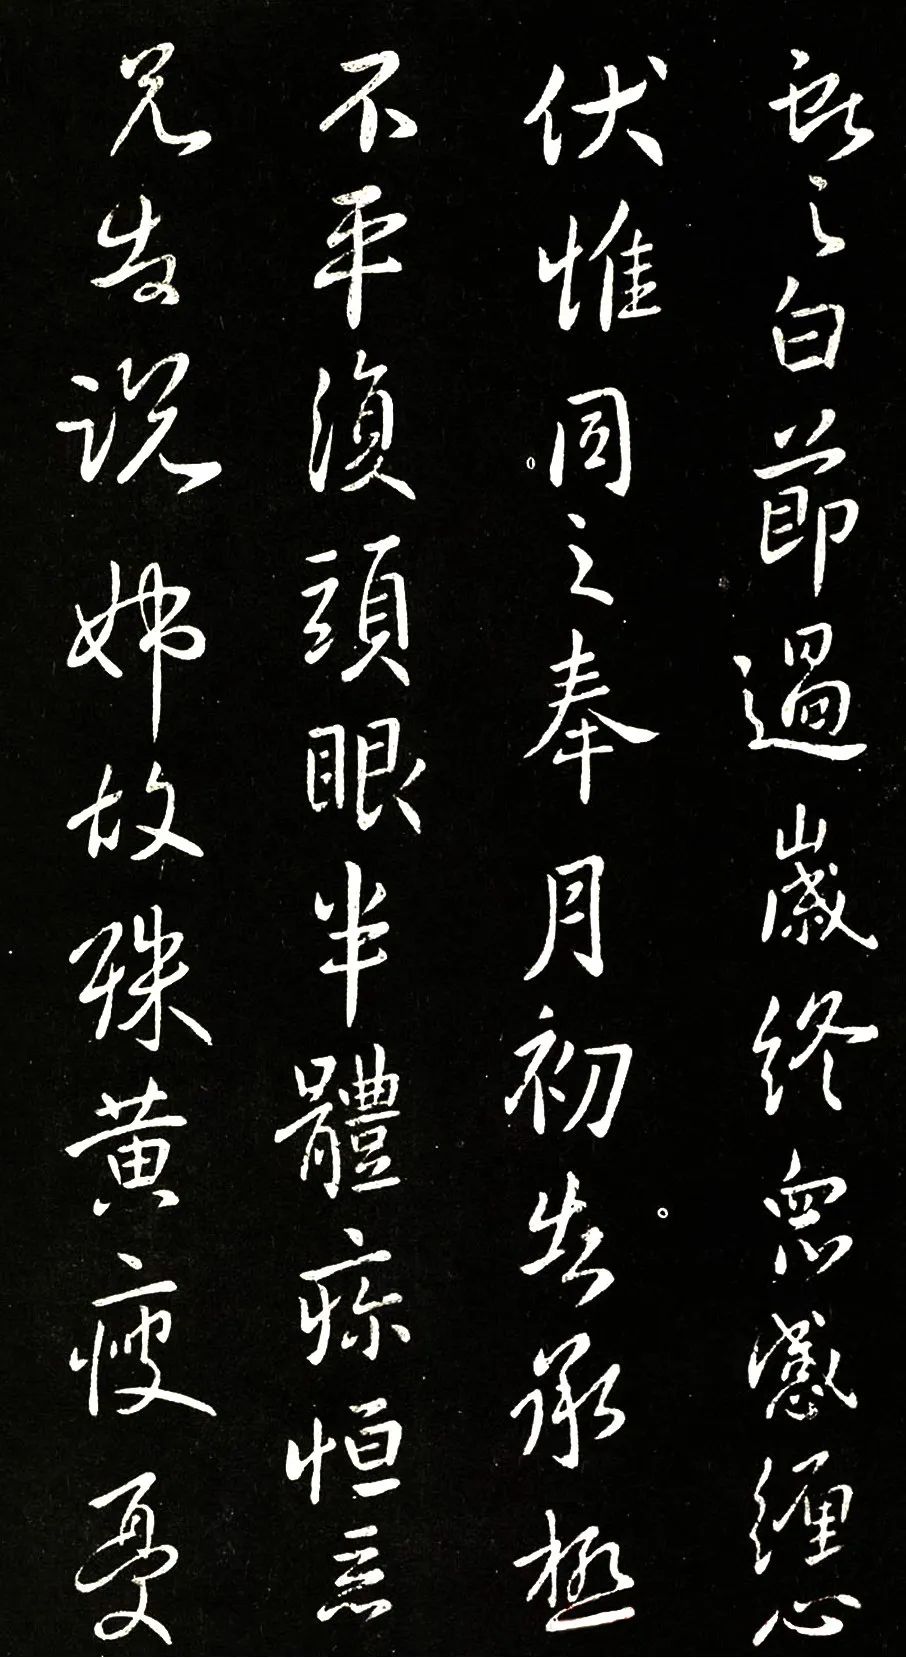 之白節過歲終眾感纏心
伏惟同之奉月初告承極
不平須頭眼半體疼恒惡
兄告說姊故殊黃瘦憂